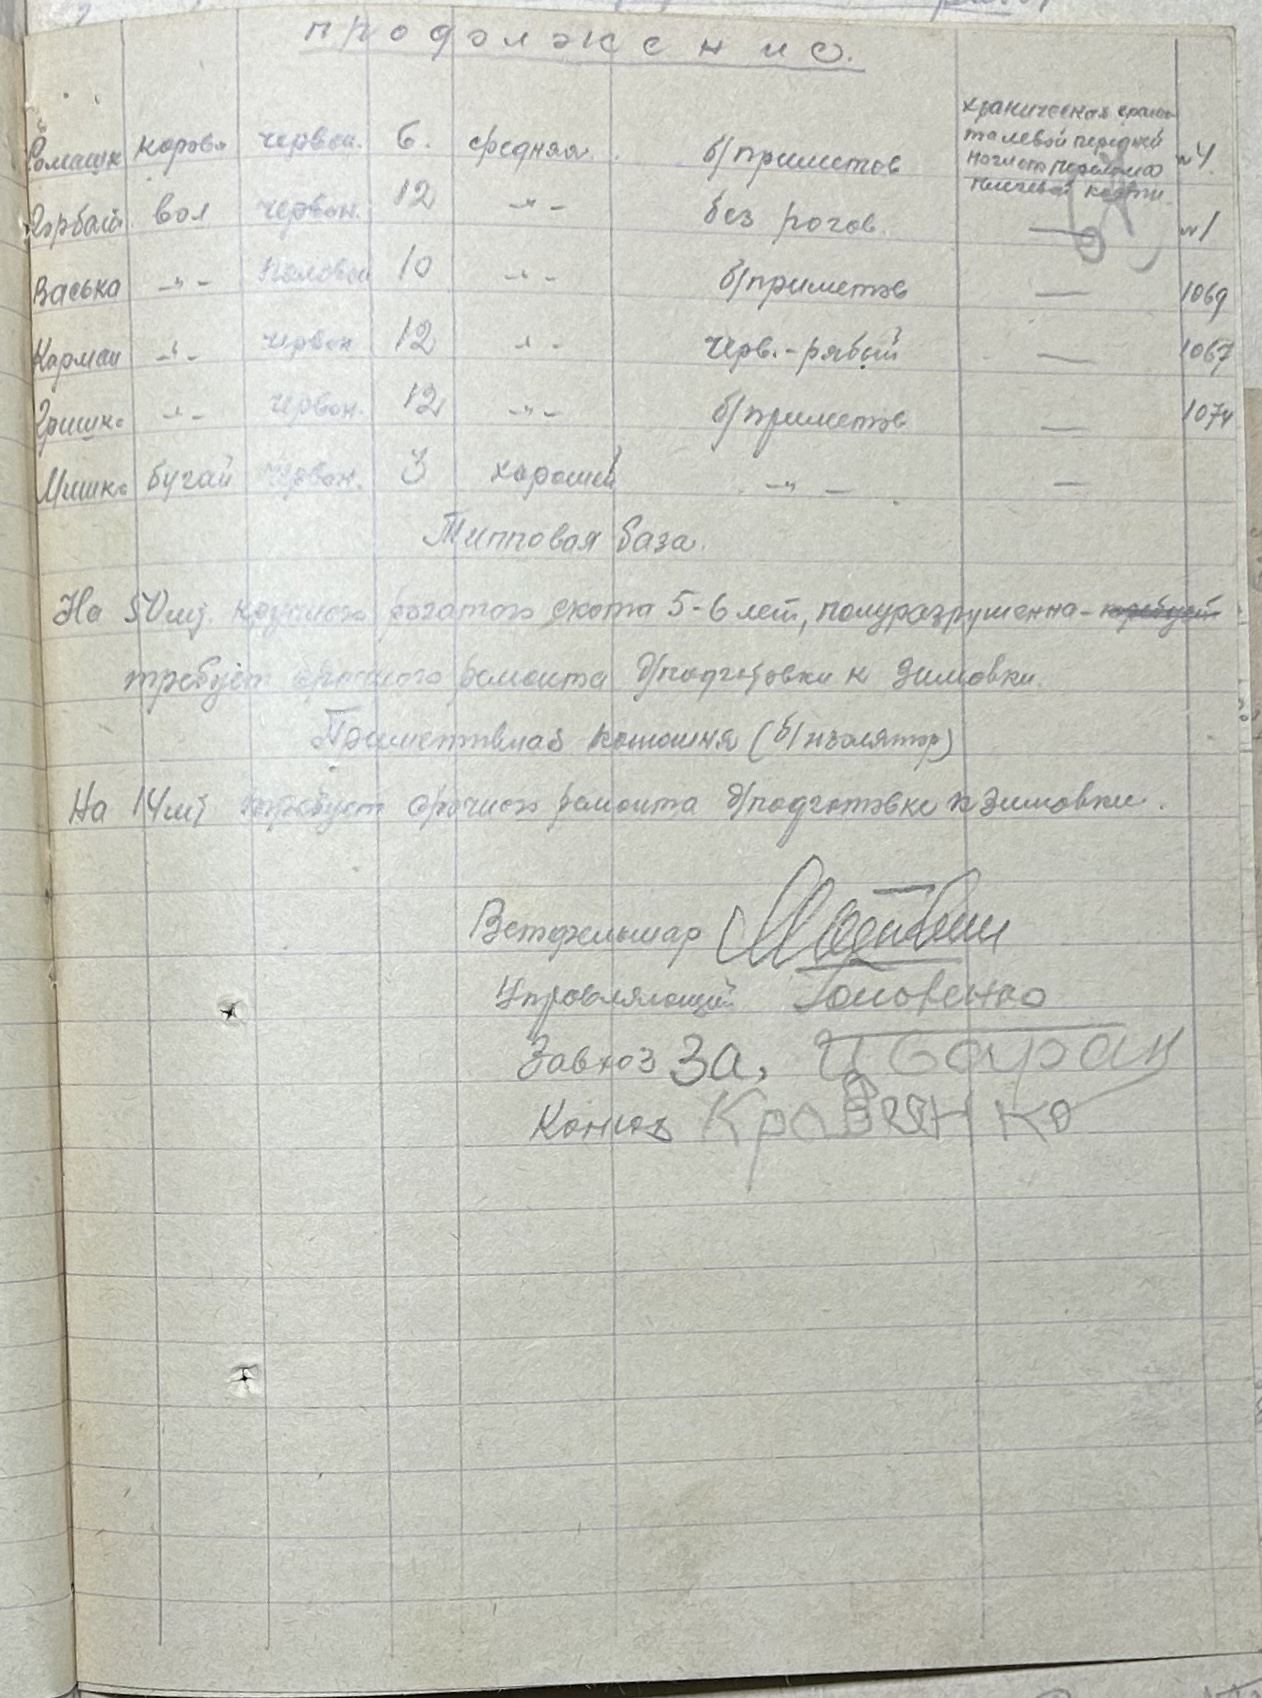 продолжение.
Ромашк корова червон. 6. средняя б/приметов хроническая хрома
та левой передней
ноги от перелома
плечевой кости. №4
Горбат вол червон. 12 -"- без рогов. — №1
Васька -"- половой 10 -"- б/приметов — 1069
Карман -"- червон 12 -"- черв.-рябый — 1067
Гришко -"- червон. 12 -"- б/приметов — 1074
Мишко бугай червон. 3 хороший -"- —
Типовая база.
На 50 шт. крупного рогатого скота 5-6 лет, полуразрушенна - требует
требует срочного ремонта д/подготовки к зимовки.
конюшня (б/изолятор)
На 14 шт требует срочного ремонта д/подготовке к зимовки.
Ветфельшар
Управляющий Головенко
Завхоз За,
Конюх Кравченко